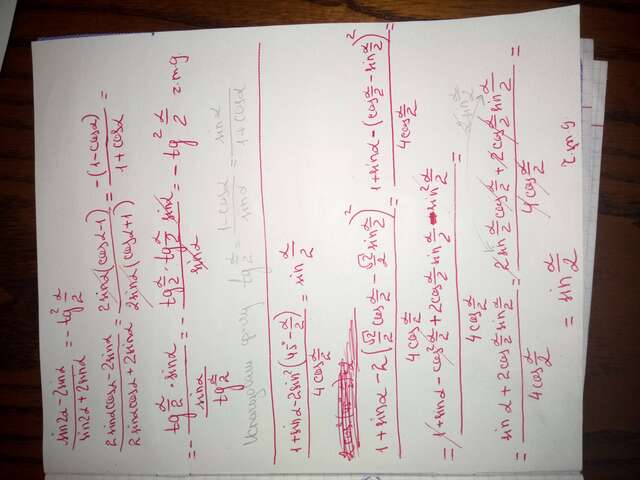 sin2α-2sinα / sin2α+2sinα = -tg² α/2
2sinαcosα-2sinα / 2sinαcosα+2sinα = 2sinα(cosα-1) / 2sinα(cosα+1) = -(1-cosα) / 1+cosα =
= - tg α/2 · sinα / (sinα / tg α/2) = - tg α/2 · tg α/2 · sinα / sinα = -tg² α/2 г.т.д.
Используем ф-лу tg α/2 = 1-cosα / sinα = sinα / 1+cosα
1+sinα-2sin²(45-α/2) / 4cos α/2 = sin α/2
1+sinα-2(√2/2 cos α/2 - √2/2 sin α/2)² / 4cos α/2 = 1+sinα-(cos α/2 - sin α/2)² / 4cos α/2
= 1+sinα-cos² α/2+2cos α/2 sin α/2 - sin² α/2 / 4cos α/2 =
2sin α/2
= sinα+2cos α/2 sin α/2 / 4cos α/2 = 2sin α/2 cos α/2+2cos α/2 sin α/2 / 4cos α/2 =
= sin α/2